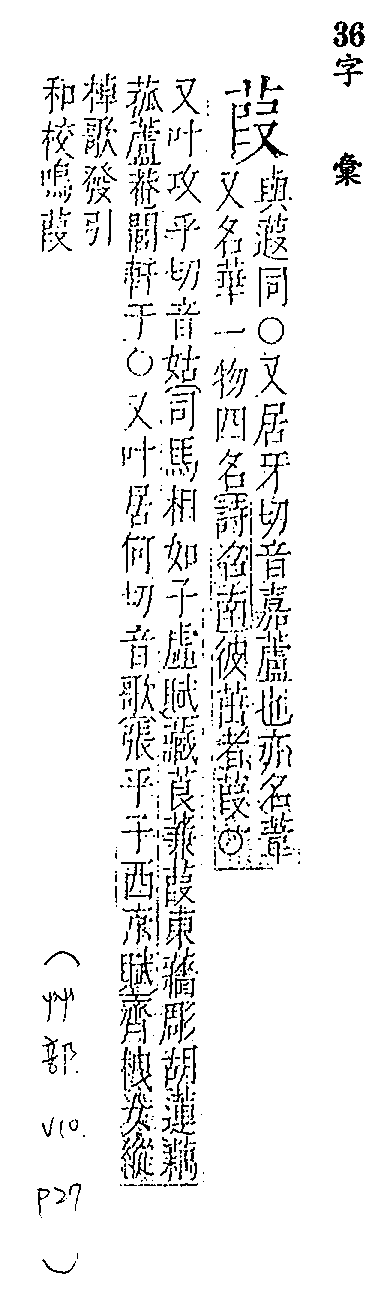 36字彙
葭 與蕸同○又居牙切音嘉蘆也亦名葦
又名華一物四名詩召南彼茁者葭○
又叶攻乎切音姑司馬相如子虛賦藏莨葭東牆彫胡蓮藕
菰蘆菴閭軒于○又叶居何切音歌張平子西京賦齊栧女縱
棹歌發引
和校鳴葭
(艸部. V10. P27)